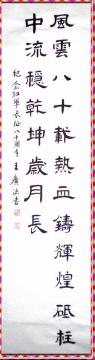 風雲八十載熱血鑄輝煌砥柱
中流穩乾坤歲月長
紀念紅軍長征八十周年